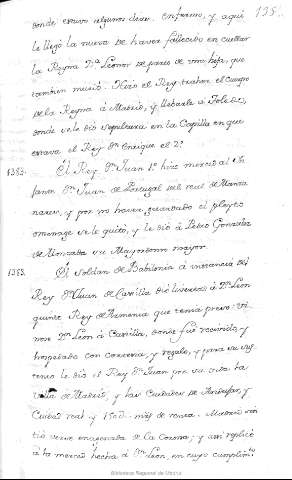 135.
donde estuvo algunos dias enfermo, y aqui
le llegó la nueva de haver fallecido en Cuellar
la Reyna Dª Leonor de parto de una hija, que
tambien murió. Hizo el Rey traher el cuerpo
de la Reyna á Madrid, y llebarla á Toledo,
donde se le dio sepultura en la Capilla en que
estava el Rey Dn Enrique el 2º
1383. El Rey Dn Juan 1º hizo merced al In
fante Dn Juan de Portugal del real de Manza
nares, y por no haver guardado el pleyto
omenage se le quitó, y le dió á Pedro Gonzalez
de Mendoza su Mayordomo mayor.
1383. El Soldan de Babilonia á instancia del
Rey Dn Juan de Castilla dió livertad á Dn Leon
quinto Rey de Armenia que tenia preso. Vi
no Dn Leon á Castilla, donde fue recivido, y
hospedado con cortesia, y regalo, y para su sus
tento le dio el Rey Dn Juan por su vida la
villa de Madrid, y las Ciudades de Andujar, y
Ciudad real y mrs de renta. Madrid sin
tió verse enagenada de la Corona; y assi replicó
á la merced hecha á Dn Leon, en cuyo cumplimto
Biblioteca Regional de Madrid